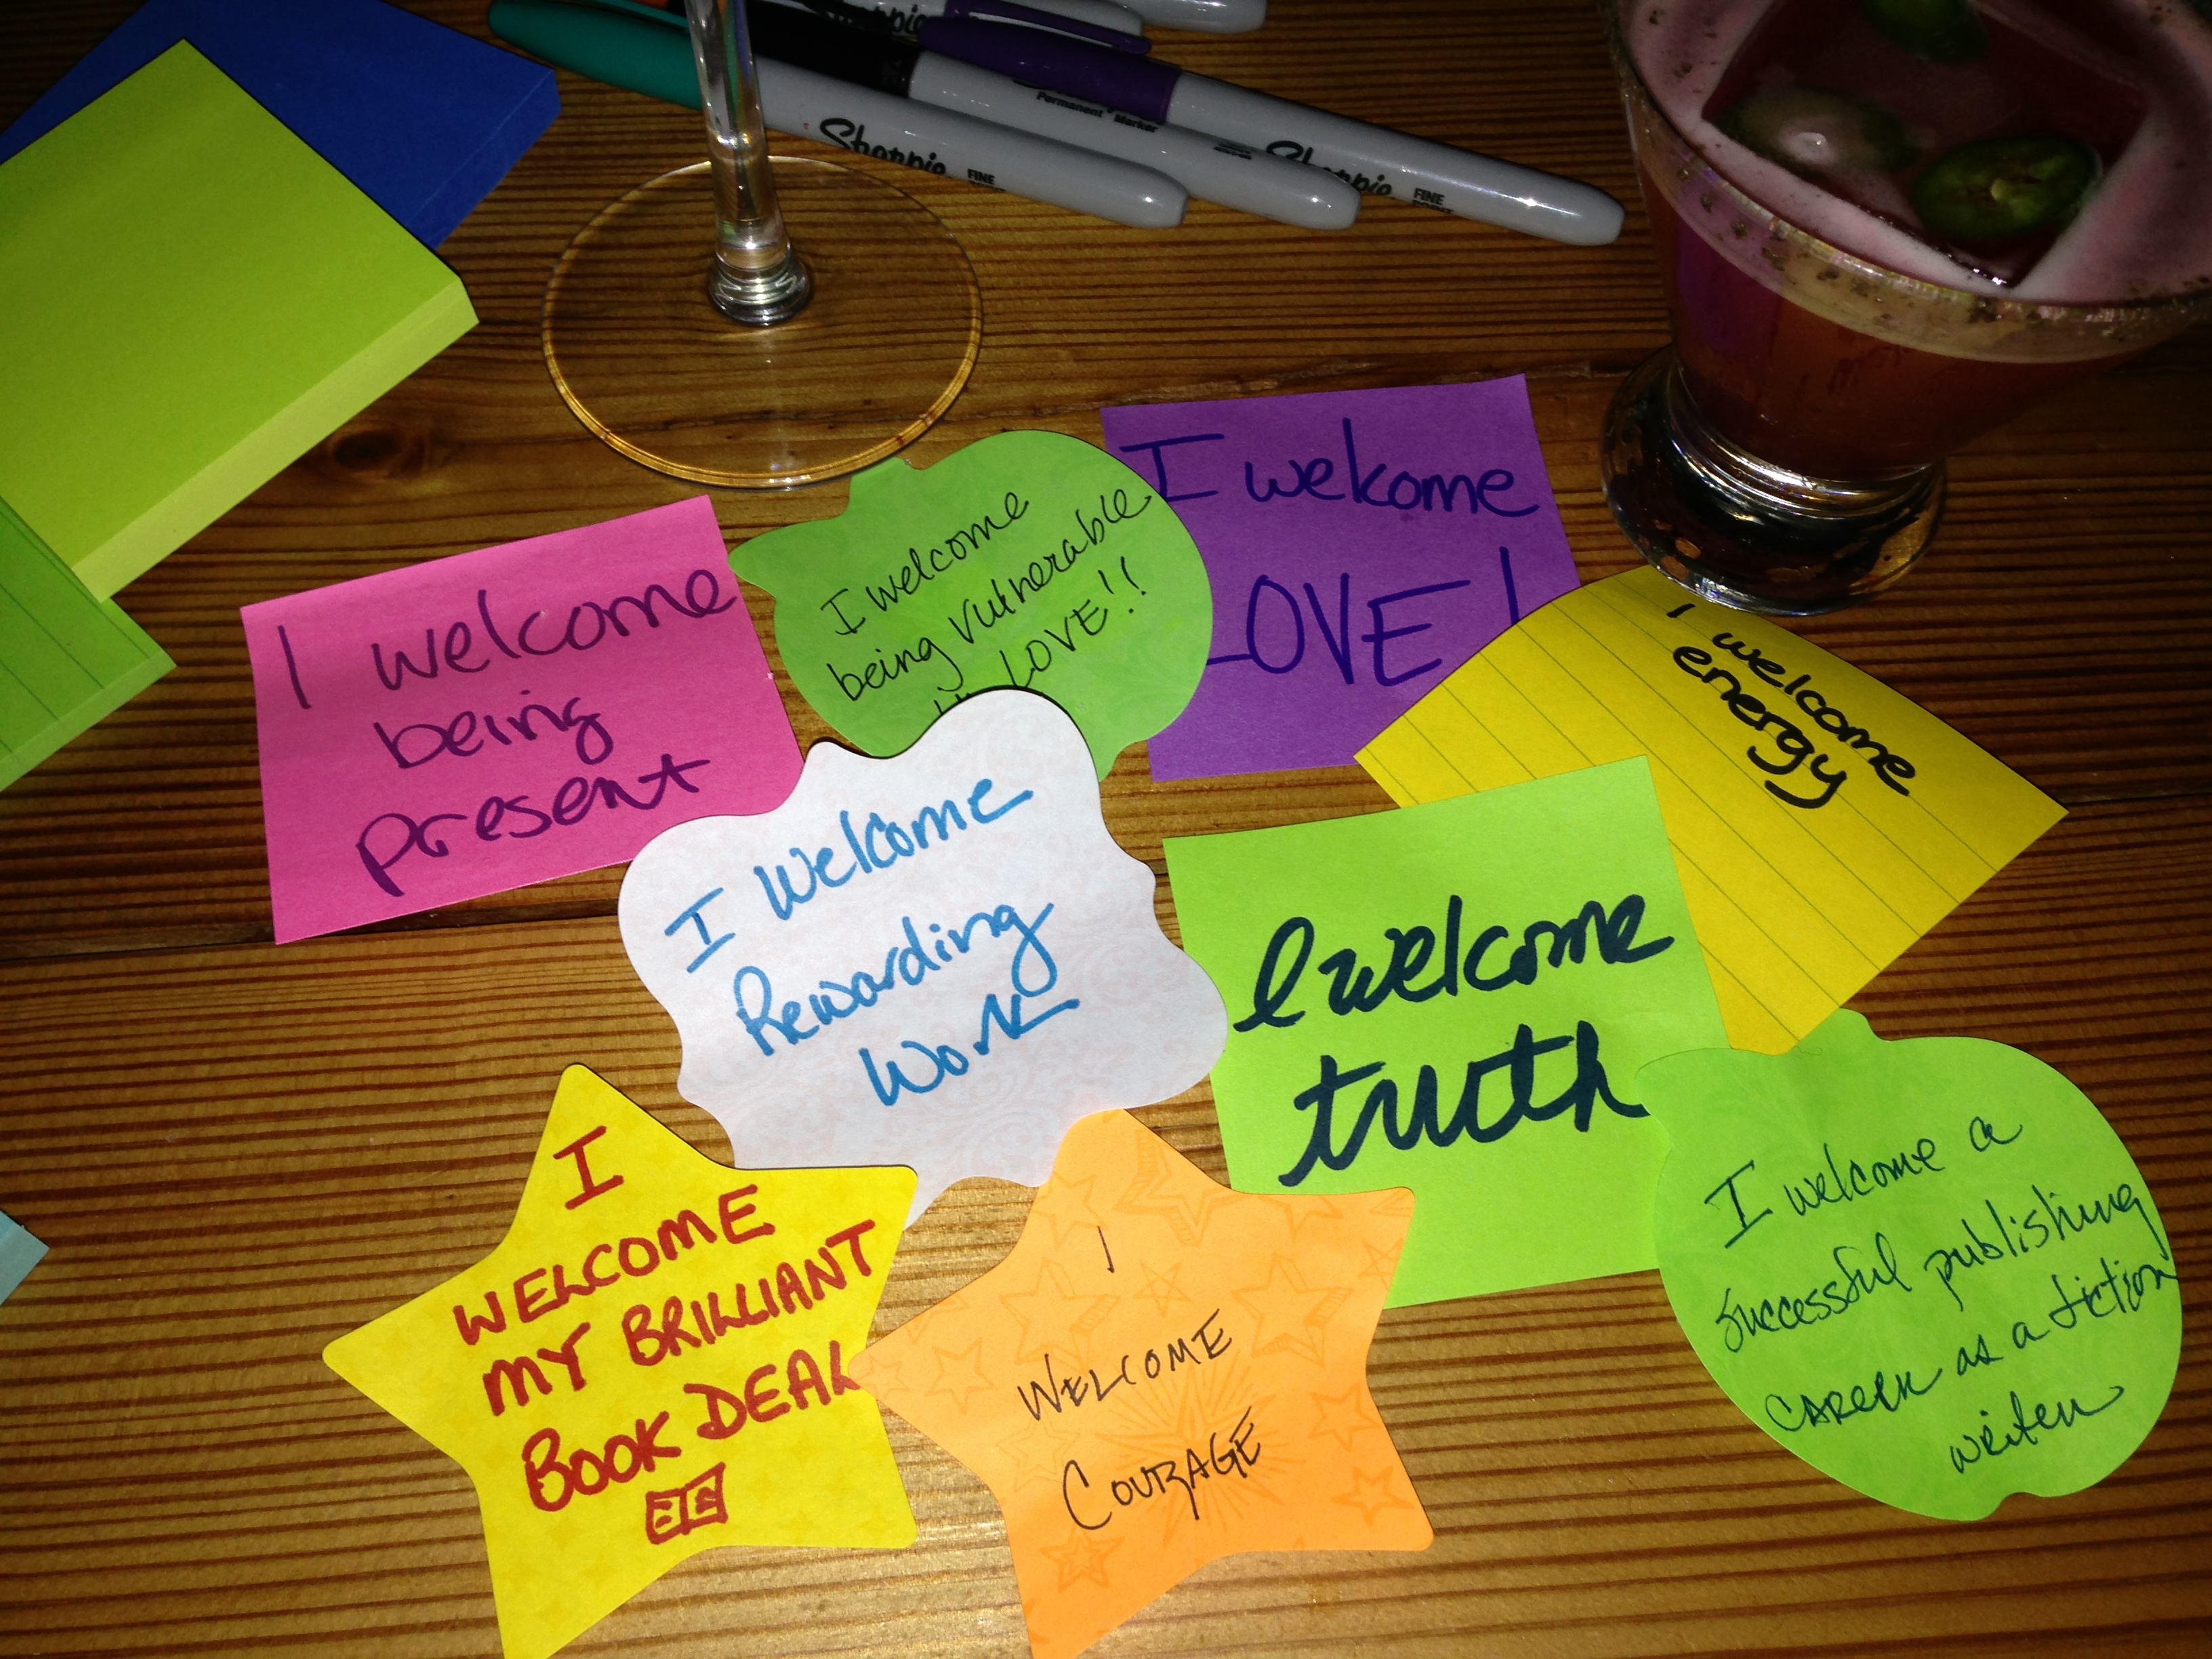 Sharpie
Permanent Marker
Sharpie
FINE
POINT
Sharpie
FINE
POINT
I welcome
being
present
I welcome
being vulnerable
in LOVE!!
I welcome
LOVE!
I welcome
energy
I Welcome
Rewarding
Work
I welcome
truth
I
WELCOME
MY BRILLIANT
BOOK DEAL
I
WELCOME
COURAGE
I welcome a
successful publishing
career as a fiction
writer